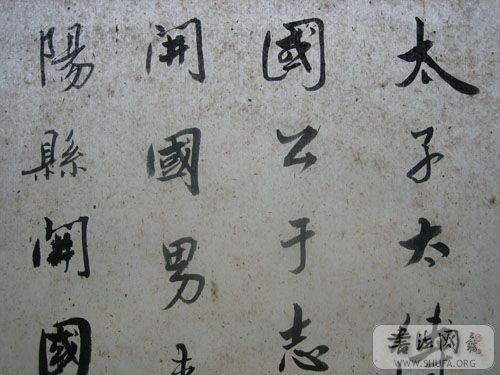 太子太
國公于志
開國男
陽縣開國
書法网
WWW.SHUFA.ORG